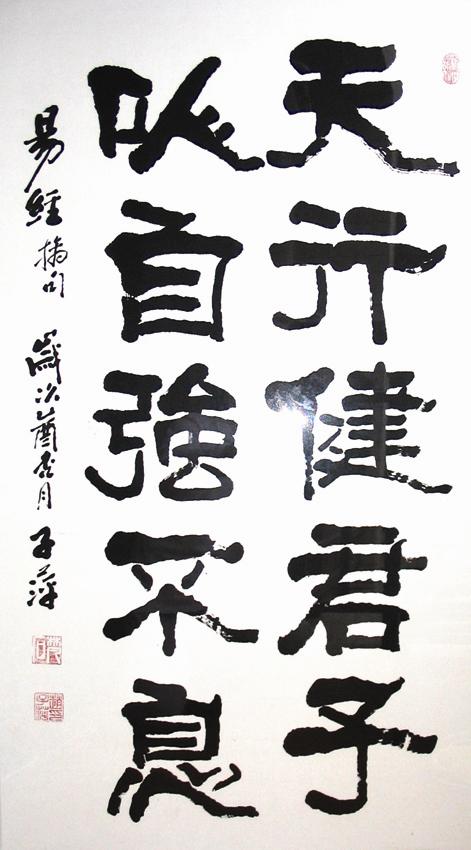 天行健君子
以自強不息
易經摘句 歲次乙酉杏月 子萍